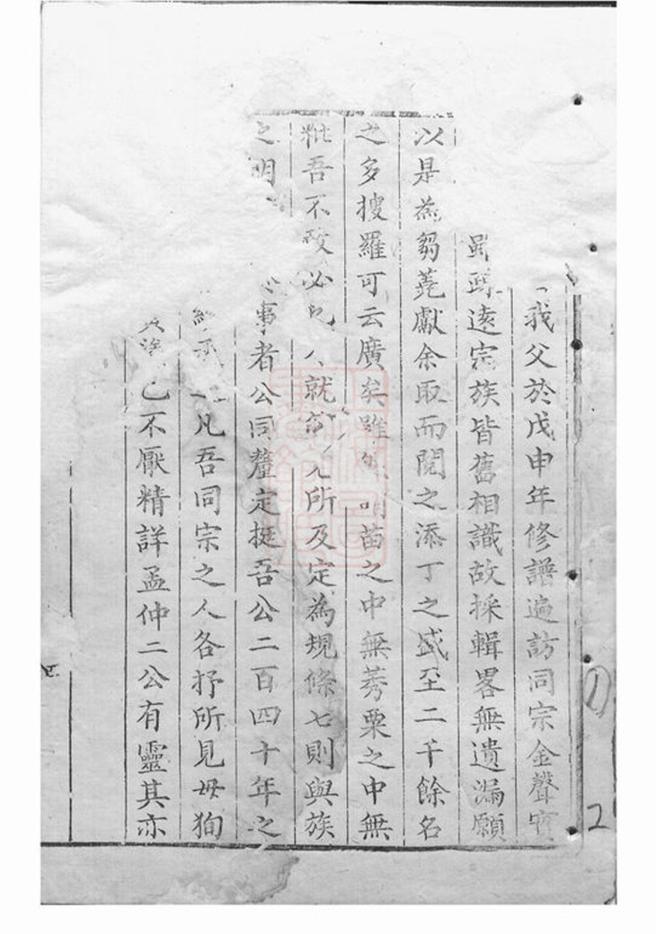 我父於戊申年修譜遍訪同宗金聲實
遠宗族皆舊相識故採輯畧無遺漏願
以是為芻蕘獻余取而閱之添丁之盛至二千餘名
之多搜羅可云廣矣雖 苗之中無莠粟之中無
粃吾不敢必 就 所及定為規條七則與族
之明 事者公同釐定挺吾公二百四十年之
凡吾同宗之人各抒所見毋狥
已不厭精詳孟仲二公有靈其亦
2